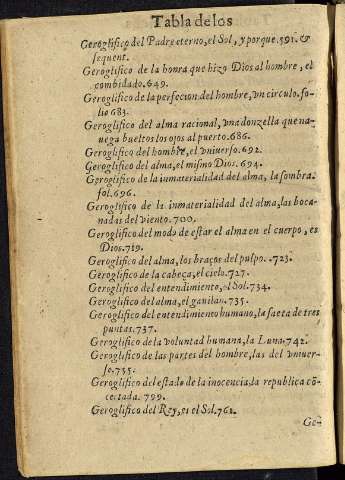 Tabla de los
Geroglifico del Padre eterno, el Sol, y porque. 591. &
sequent.
Geroglifico de la honra que hizo Dios al hombre, el
combidado. 649.
Geroglifico de la perfecion del hombre, vn circulo. fo-
lio 683.
Geroglifico del alma racional, vna donzella que na-
uega bueltos los ojos al puerto. 686.
Geroglifico del hombre, el vniuerso. 692.
Geroglifico del alma, el mismo Dios. 694.
Geroglifico de la inmaterialidad del alma, la sombra.
fol. 696.
Geroglifico de la inmaterialidad del alma, las boca-
nadas del viento. 700.
Geroglifico del modo de estar el alma en el cuerpo, es
Dios. 719.
Geroglifico del alma, los braços del pulpo. 723.
Geroglifico de la cabeça, el cielo. 727.
Geroglifico del entendimiento, el Sol. 734.
Geroglifico del alma, el gauilan. 735.
Geroglifico del entendimiento humano, la saeta de tres
puntas. 737.
Geroglifico de la voluntad humana, la Luna. 742.
Geroglifico de las partes del hombre, las del vniuer-
so. 755.
Geroglifico del estado de la inocencia, la republica cõ-
certada. 799.
Geroglifico del Rey, es el Sol. 762.